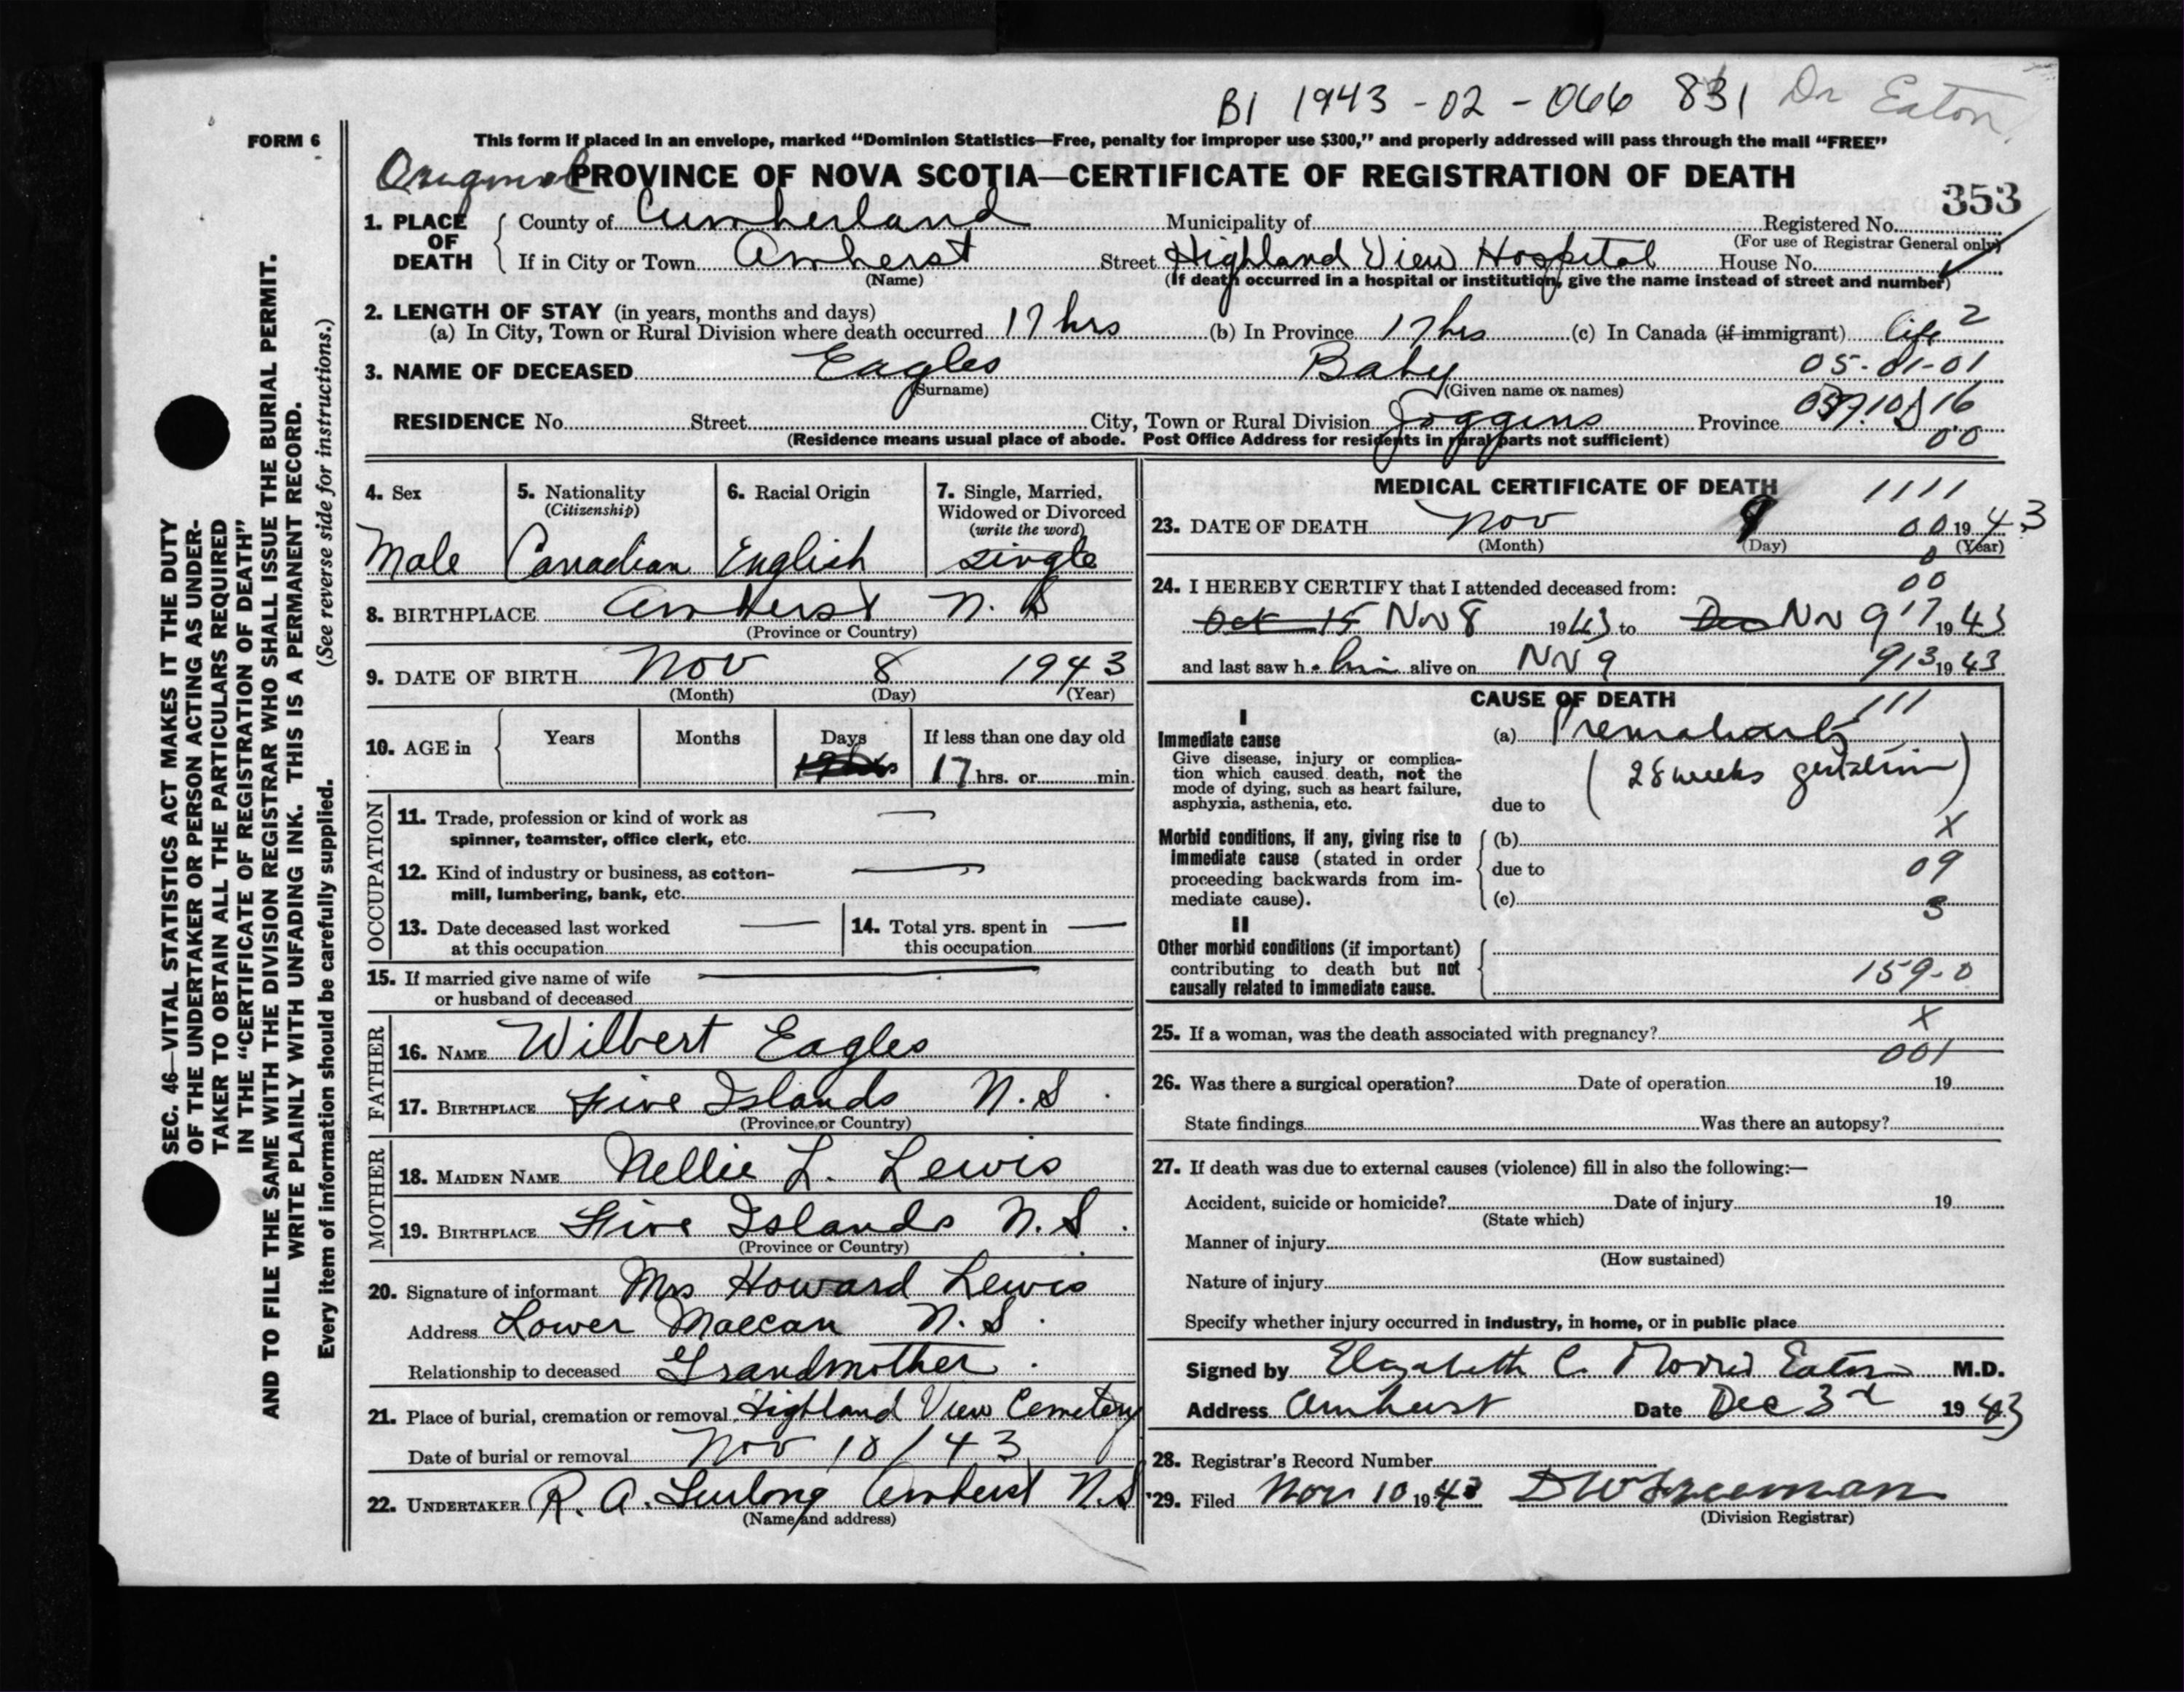 B1 1943-02-066831 Dr Eaton
FORM 6
This form if placed in an envelope, marked “Dominion Statistics—Free, penalty for improper use $300,” and properly addressed will pass through the mail “FREE”
Original PROVINCE OF NOVA SCOTIA—CERTIFICATE OF REGISTRATION OF DEATH
353
1. PLACE OF DEATH { County of Cumberland Municipality of Registered No.
(For use of Registrar General only)
If in City or Town Amherst Street Highland View Hospital House No.
(Name) (If death occurred in a hospital or institution, give the name instead of street and number)
2. LENGTH OF STAY (in years, months and days)
(a) In City, Town or Rural Division where death occurred 17 hrs (b) In Province 17 hrs (c) In Canada (if immigrant) life 2
3. NAME OF DECEASED Eagles Baby 05-01-01
(Surname) (Given name or names)
RESIDENCE No. Street City, Town or Rural Division Joggins Province
(Residence means usual place of abode. Post Office Address for residents in rural parts not sufficient) 00
4. Sex 5. Nationality 6. Racial Origin 7. Single, Married,
(Citizenship) Widowed or Divorced
(write the word)
Male Canadian English single
8. BIRTHPLACE Amherst N.S
(Province or Country)
9. DATE OF BIRTH Nov 8 1943
(Month) (Day) (Year)
10. AGE in { Years Months Days If less than one day old
17 hrs. or min.
OCCUPATION
11. Trade, profession or kind of work as
spinner, teamster, office clerk, etc. —
12. Kind of industry or business, as cotton-
mill, lumbering, bank, etc. —
13. Date deceased last worked — 14. Total yrs. spent in —
at this occupation this occupation
15. If married give name of wife —
or husband of deceased
FATHER
16. NAME Wilbert Eagles
17. BIRTHPLACE Five Islands N.S.
(Province or Country)
MOTHER
18. MAIDEN NAME Nellie L. Lewis
19. BIRTHPLACE Five Islands N.S.
(Province or Country)
20. Signature of informant Mrs Howard Lewis
Address Lower Maccan N.S.
Relationship to deceased Grandmother.
21. Place of burial, cremation or removal Highland View Cemetery
Date of burial or removal Nov 10/43
22. UNDERTAKER R. A. Furlong Amherst N.S
(Name and address)
MEDICAL CERTIFICATE OF DEATH 1111
23. DATE OF DEATH Nov 9 00 1943
(Month) (Day) (Year)
0
24. I HEREBY CERTIFY that I attended deceased from: 00
Oct 15 Nov 8 1943 to Dec Nov 9 17 1943
and last saw h him alive on Nov 9 913 1943
CAUSE OF DEATH 111
I
Immediate cause (a) Prematurity
Give disease, injury or complica-
tion which caused death, not the
mode of dying, such as heart failure,
asphyxia, asthenia, etc. due to (28 weeks gestation)
Morbid conditions, if any, giving rise to (b) X
immediate cause (stated in order
proceeding backwards from im- due to 09
mediate cause). (c) 3
II
Other morbid conditions (if important)
contributing to death but not
causally related to immediate cause. 159-0
25. If a woman, was the death associated with pregnancy? X
001
26. Was there a surgical operation? Date of operation 19
State findings Was there an autopsy?
27. If death was due to external causes (violence) fill in also the following:—
Accident, suicide or homicide? Date of injury 19
(State which)
Manner of injury
(How sustained)
Nature of injury
Specify whether injury occurred in industry, in home, or in public place
Signed by Elizabeth C. Morris Eaton M.D.
Address Amherst Date Dec 3rd 1943
28. Registrar's Record Number
29. Filed Nov 10 1943 D W Freeman
(Division Registrar)
SEC. 46—VITAL STATISTICS ACT MAKES IT THE DUTY
OF THE UNDERTAKER OR PERSON ACTING AS UNDER-
TAKER TO OBTAIN ALL THE PARTICULARS REQUIRED
IN THE “CERTIFICATE OF REGISTRATION OF DEATH”
AND TO FILE THE SAME WITH THE DIVISION REGISTRAR WHO SHALL ISSUE THE BURIAL PERMIT.
WRITE PLAINLY WITH UNFADING INK. THIS IS A PERMANENT RECORD.
Every item of information should be carefully supplied. (See reverse side for instructions.)